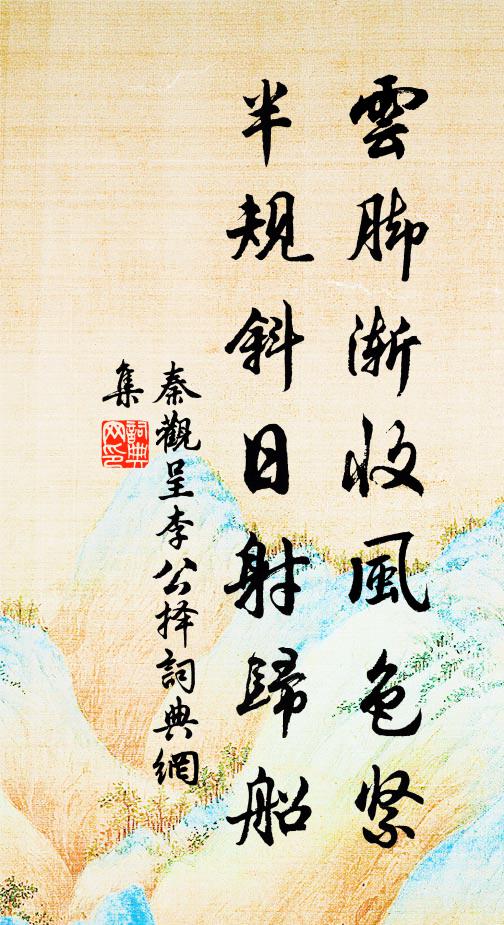 雲脚漸收風色緊
半規斜日射歸船
秦觀呈李公择詞典網
集
詞典网印